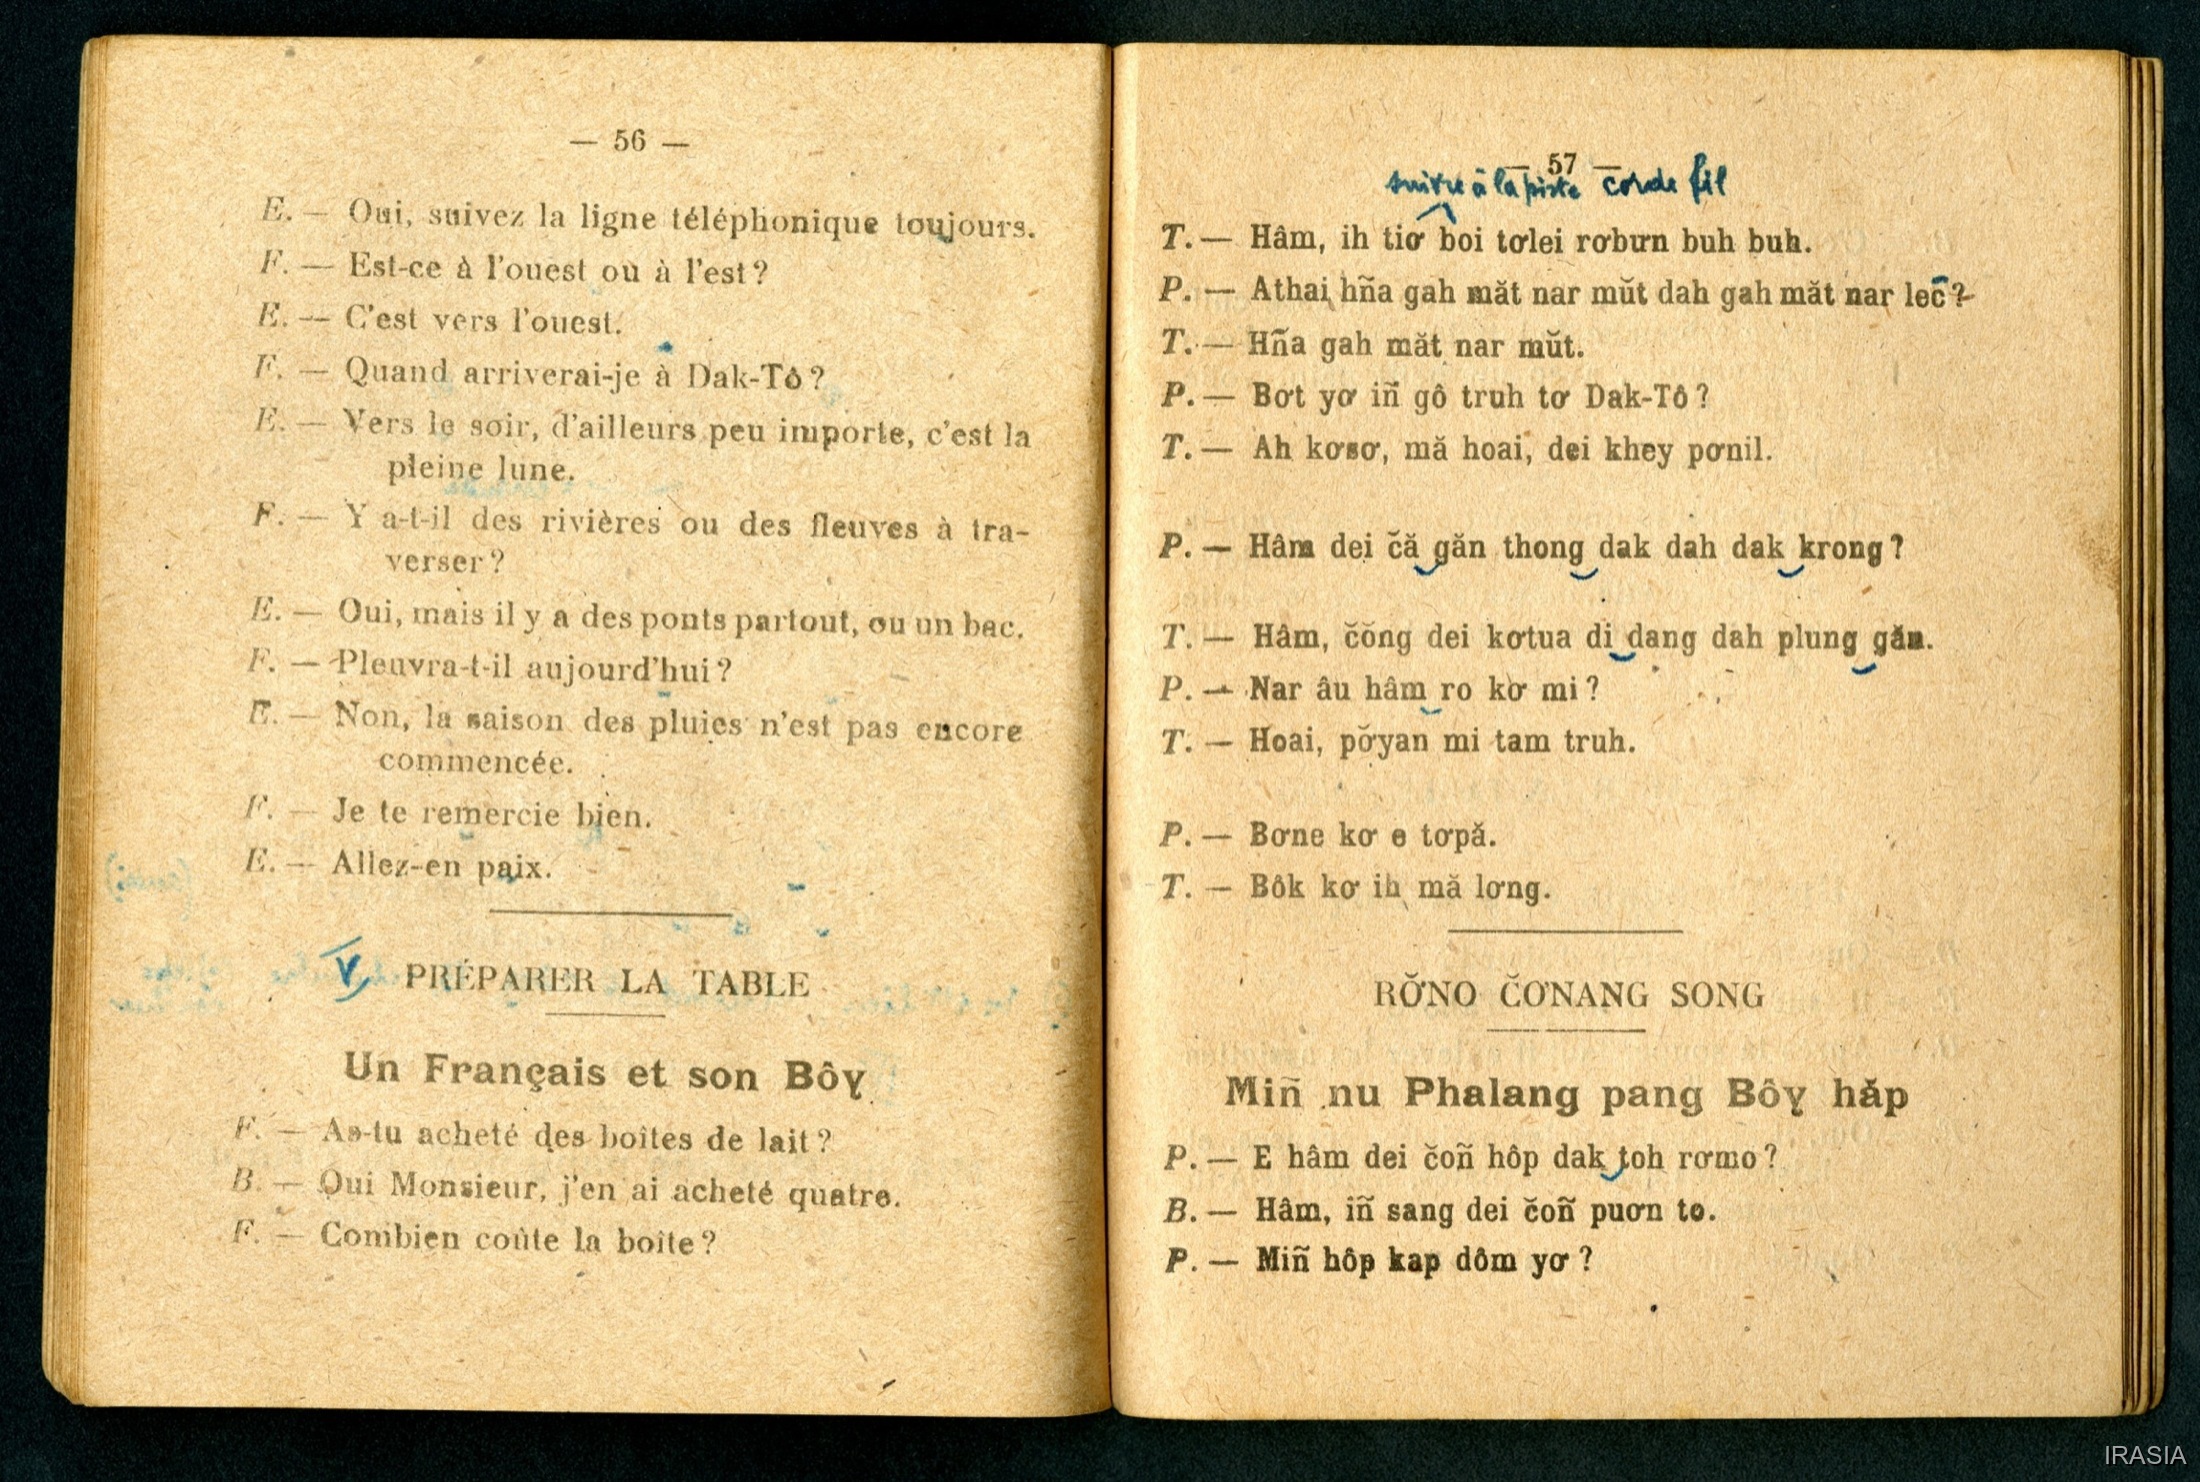 — 56 —
E. — Oui, suivez la ligne téléphonique toujours.
F. — Est-ce à l'ouest ou à l'est ?
E. — C'est vers l'ouest.
F. — Quand arriverai-je à Dak-Tô ?
E. — Vers le soir, d'ailleurs peu importe, c'est la
pleine lune.
F. — Y a-t-il des rivières ou des fleuves à tra-
verser ?
E. — Oui, mais il y a des ponts partout, ou un bac.
F. — Pleuvra-t-il aujourd'hui ?
E. — Non, la saison des pluies n'est pas encore
commencée.
F. — Je te remercie bien.
E. — Allez-en paix.
V PRÉPARER LA TABLE
Un Français et son Bôy
F. — As-tu acheté des boîtes de lait ?
B. — Oui Monsieur, j'en ai acheté quatre.
F. — Combien coûte la boîte ?
— 57 —
suivre à la piste corde fil
T. — Hâm, ih tiơ boi tơlei rơbưn buh buh.
P. — Athai hña gah măt nar mŭt dah gah măt nar lec̆ ?
T. — Hña gah măt nar mŭt.
P. — Bơt yơ iñ gô truh tơ Dak-Tô ?
T. — Ah kơsơ, mă hoai, dei khey pơnil.
P. — Hâm dei c̆ă găn thong dak dah dak krong ?
T. — Hâm, c̆ŏng dei kơtua di dang dah plung găn.
P. — Nar âu hâm ro kơ mi ?
T. — Hoai, pơ̆yan mi tam truh.
P. — Bơne kơ e tơpă.
T. — Bôk kơ ih mă lơng.
RƠ̆NO C̆ƠNANG SONG
Miñ nu Phalang pang Bôy hăp
P. — E hâm dei c̆oñ hôp dak toh rơmo ?
B. — Hâm, iñ sang dei c̆oñ puơn to.
P. — Miñ hôp kap dôm yơ ?
IRASIA